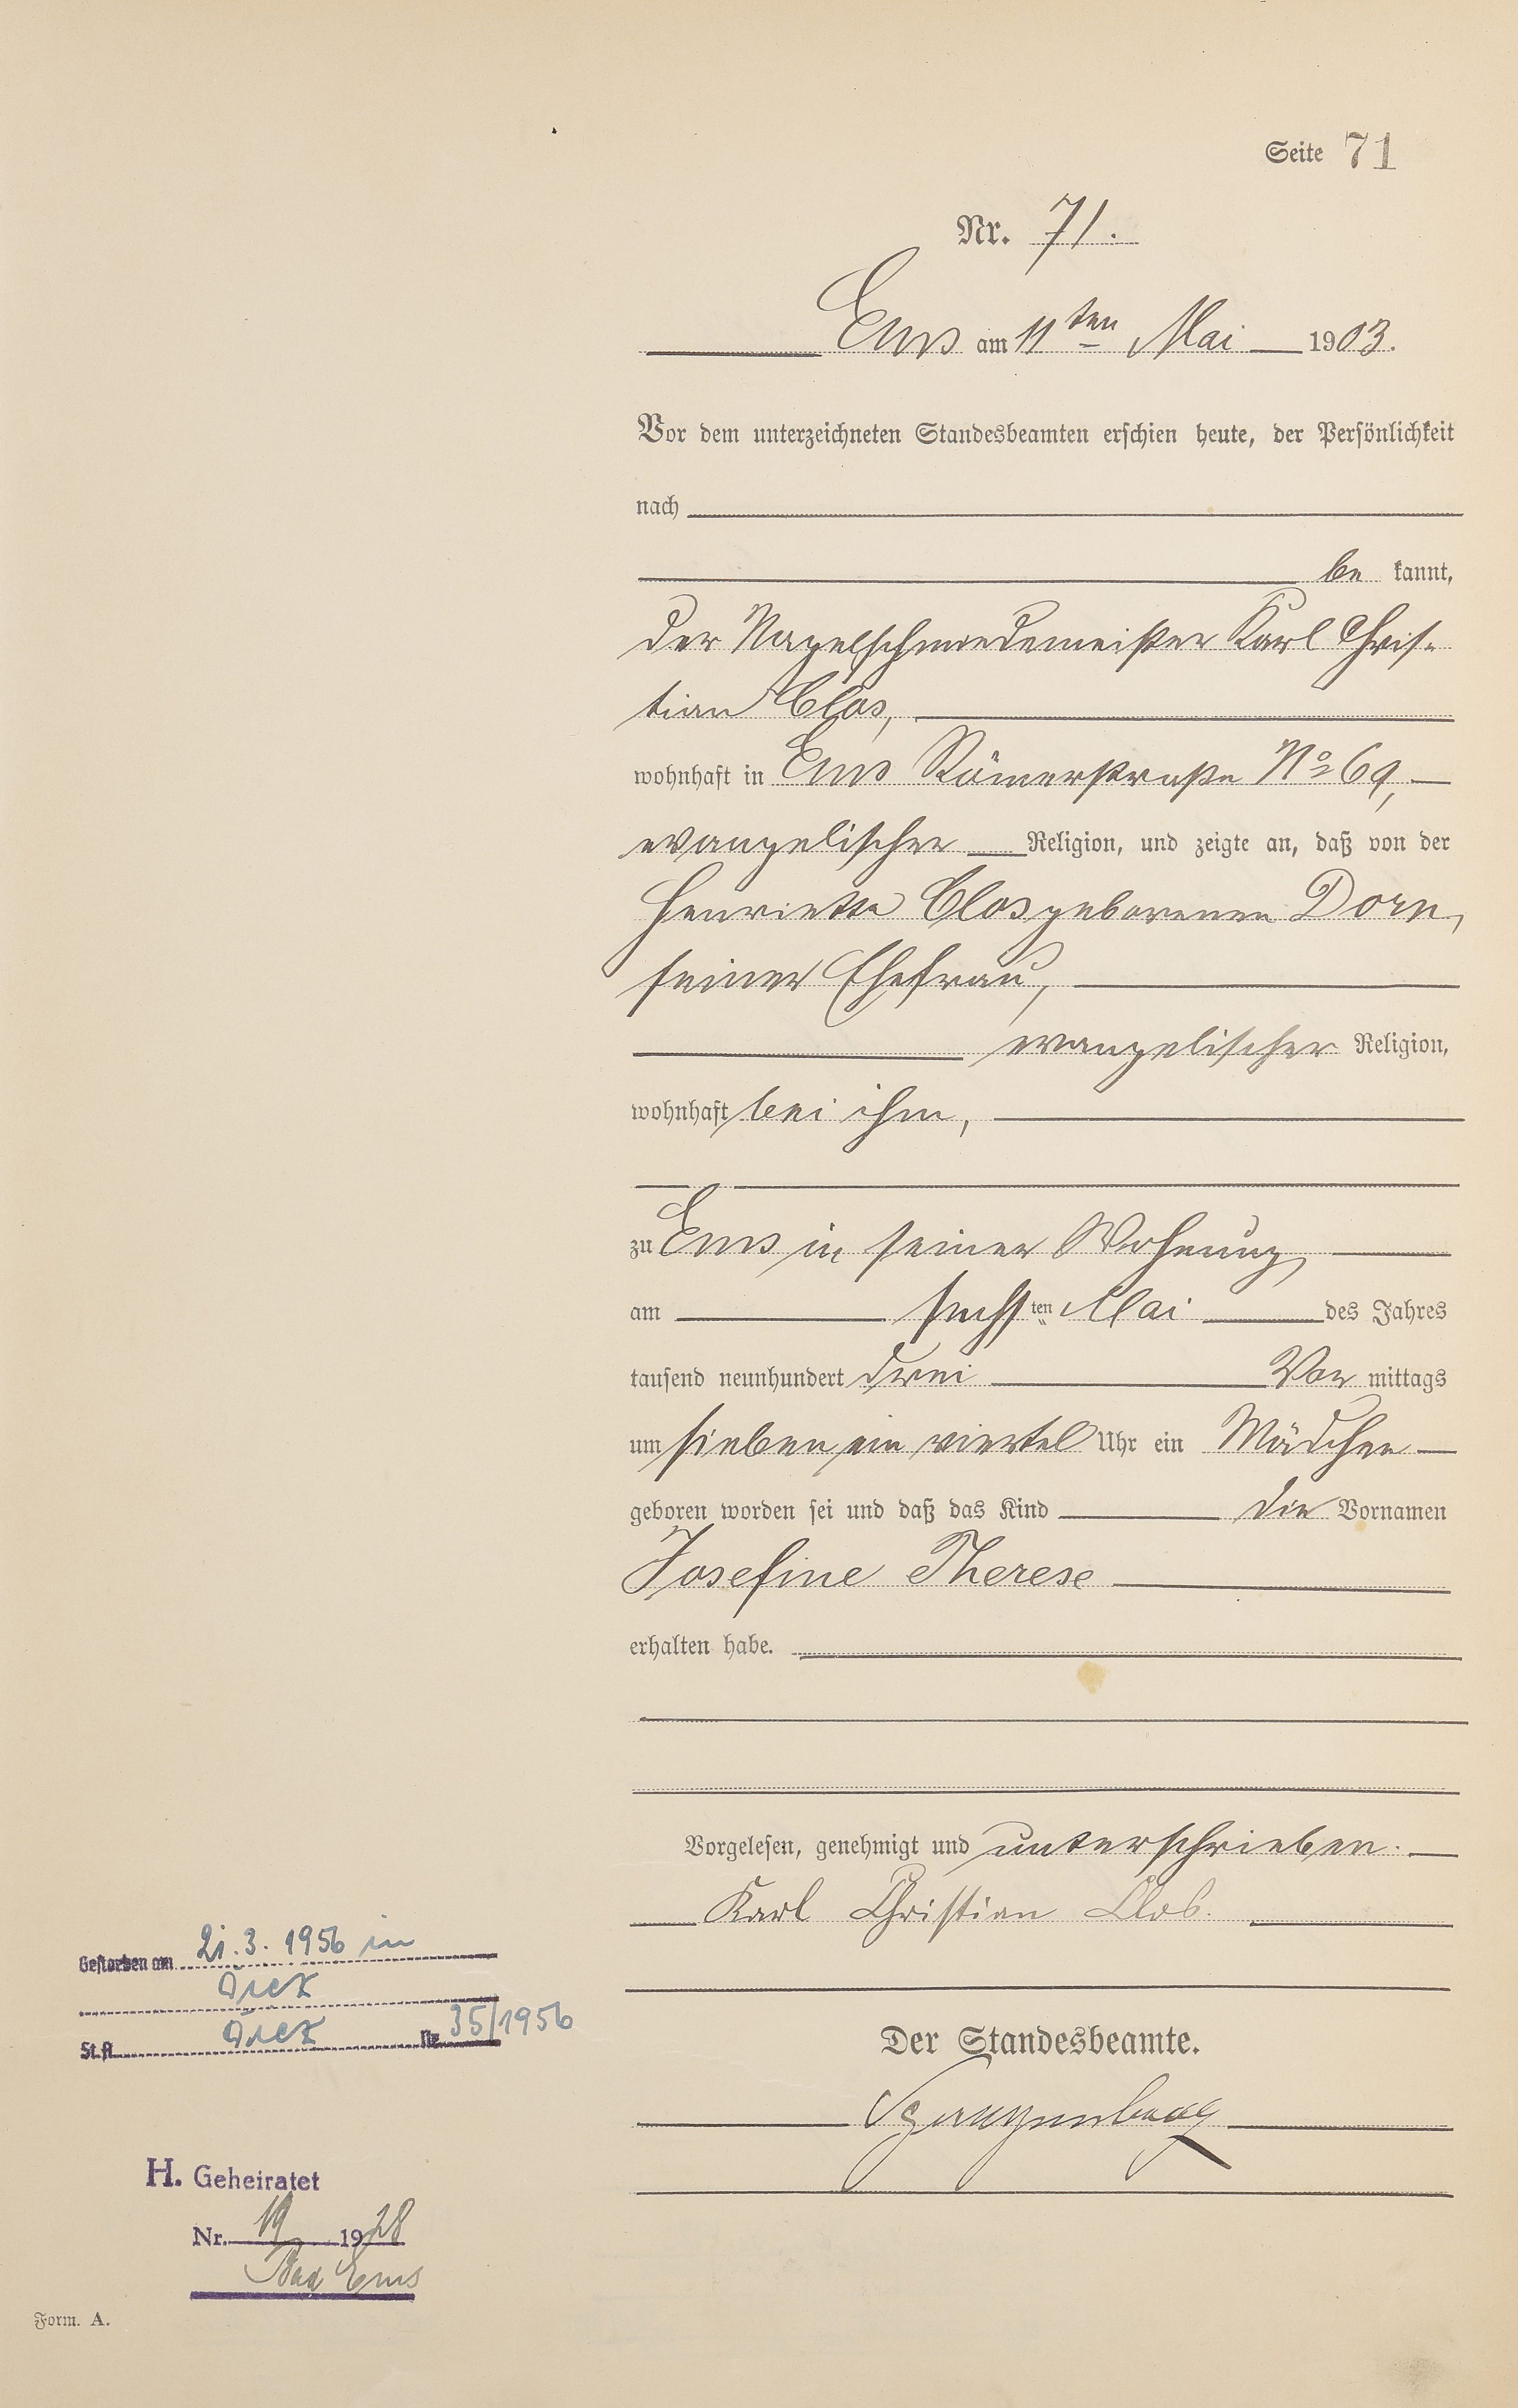 Seite 71
Nr. 71.
Ems am 11ten Mai 1903.
Vor dem unterzeichneten Standesbeamten erschien heute, der Persönlichkeit
nach
be kannt,
der Nagelschmiedemeister Karl Chris-
tian Clos,
wohnhaft in Ems Römerstraße No 69,
evangelischer Religion, und zeigte an, daß von der
Henriette Clos geborenen Dorn,
seiner Ehefrau,
evangelischer Religion,
wohnhaft bei ihm,
zu Ems in seiner Wohnung
am sechsten Mai des Jahres
tausend neunhundert drei Vor mittags
um sieben ein viertel Uhr ein Mädchen
geboren worden sei und daß das Kind die Vornamen
Josefine Therese
erhalten habe.
Vorgelesen, genehmigt und unterschrieben.
Karl Christian Clos.
Der Standesbeamte.
Gestorben am 21.3.1956 in
Diez
St.A. Diez Nr. 35/1956
H. Geheiratet
Nr. 19 1928
Bad Ems
Form. A.